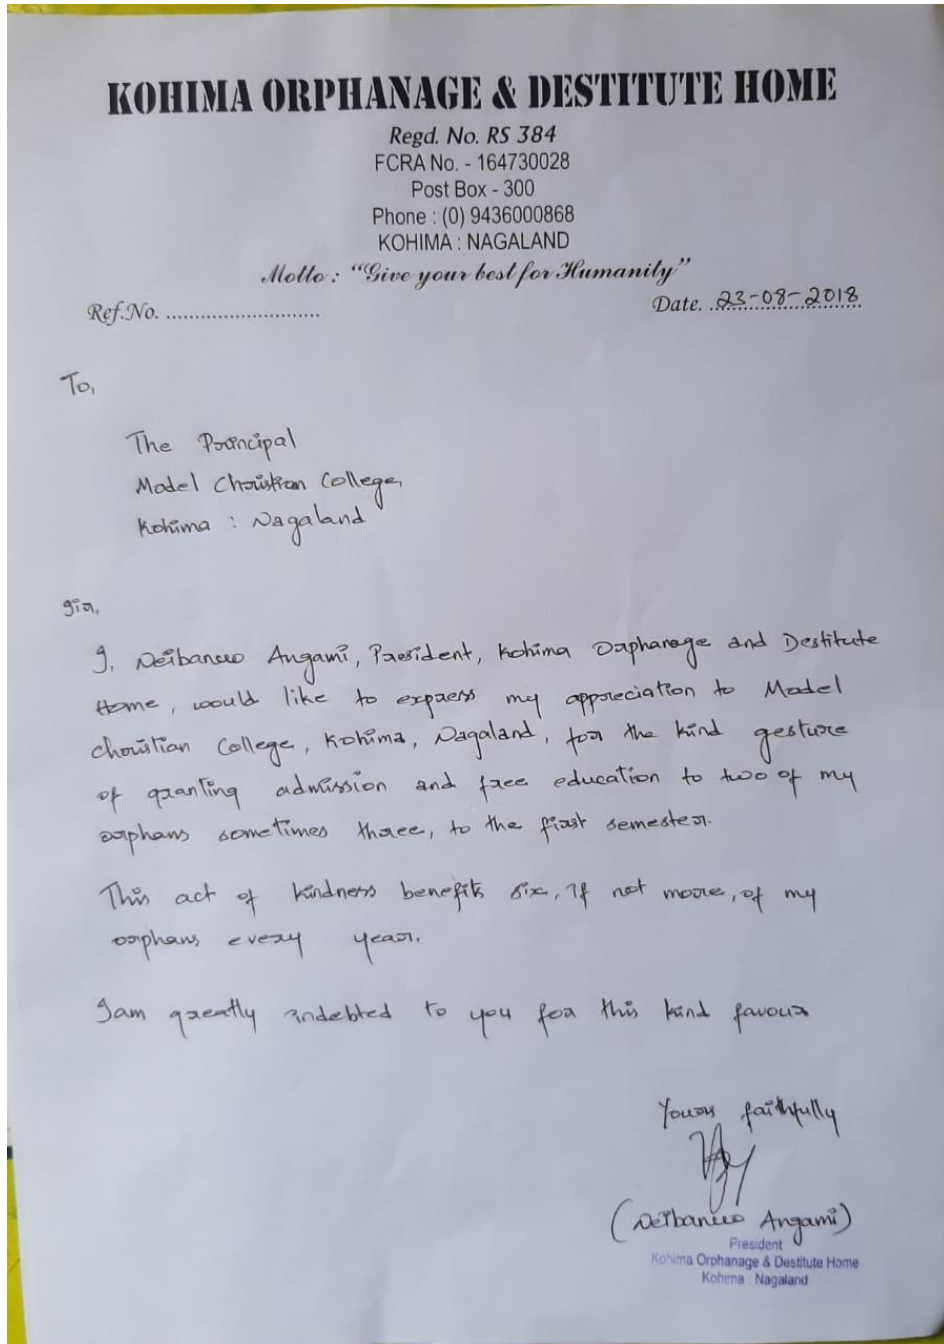 KOHIMA ORPHANAGE & DESTITUTE HOME
Regd. No. RS 384
FCRA No. - 164730028
Post Box - 300
Phone : (0) 9436000868
KOHIMA : NAGALAND
Motto : “Give your best for Humanity”
Ref.No. ........................... Date. 23-08-2018
To,
The Principal
Model Christian College,
Kohima : Nagaland
Sir,
I, Neibanuo Angami, President, Kohima Orphanage and Destitute
Home, would like to express my appreciation to Model
Christian College, Kohima, Nagaland, for the kind gesture
of granting admission and free education to two of my
orphans sometimes three, to the first semester.
This act of kindness benefits six, if not more, of my
orphans every year.
I am greatly indebted to you for this kind favour
Yours faithfully
(Neibanuo Angami)
President
Kohima Orphanage & Destitute Home
Kohima : Nagaland